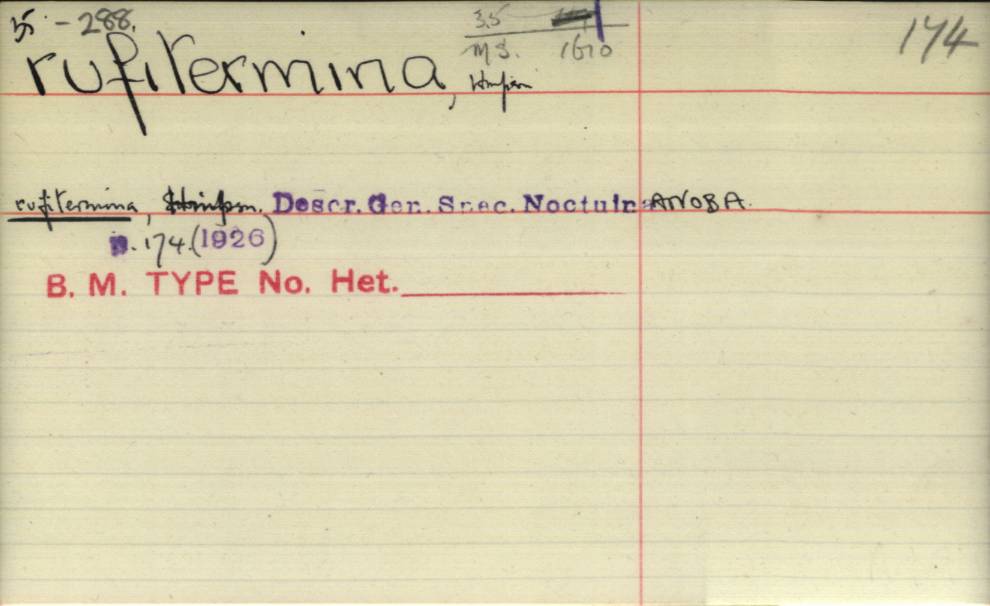 35 - 288.
35
MS. 1610
174
rufitermina, Hmpsn
rufitermina, Hmpsn. Descr. Gen. Spec. Noctuin ANOBA.
p. 174. (1926)
B. M. TYPE No. Het.